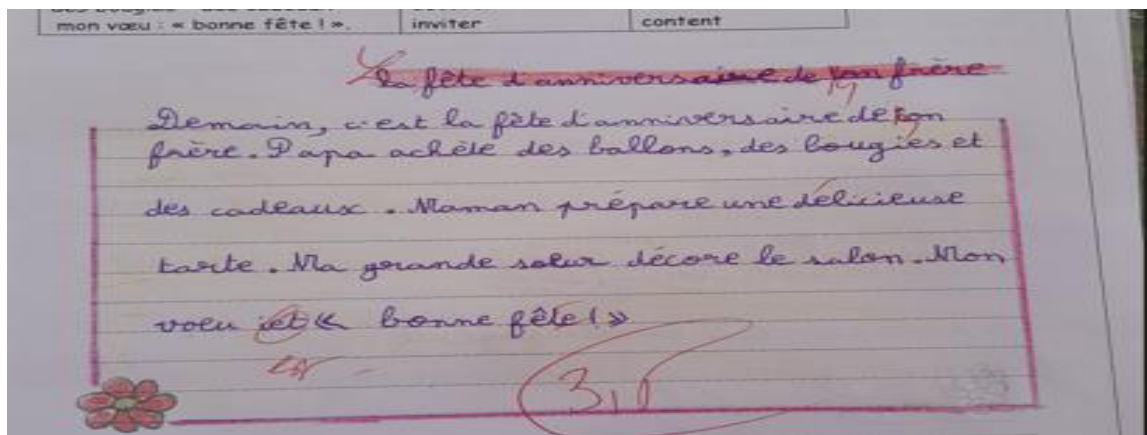 mon vœu : « bonne fête ! ». inviter content
La fête d'anniversaire de mon frère
Demain, c'est la fête d'anniversaire de mon
frère. Papa achète des ballons, des bougies et
des cadeaux. Maman prépare une délicieuse
tarte. Ma grande sœur décore le salon. Mon
voeu et « bonne fête ! »